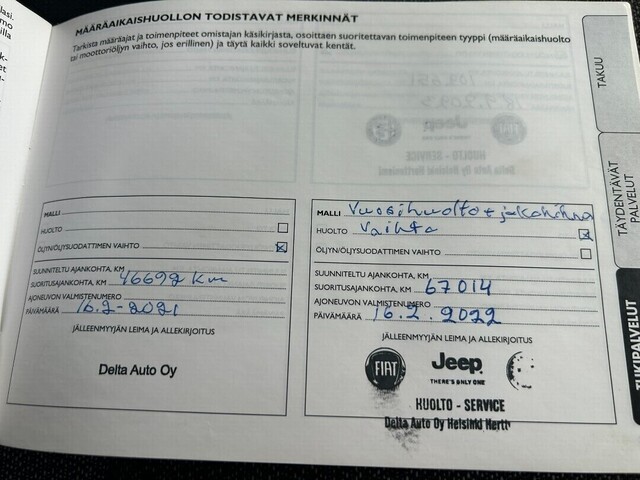 MÄÄRÄAIKAISHUOLLON TODISTAVAT MERKINNÄT
Tarkista määräajat ja toimenpiteet omistajan käsikirjasta, osoittaen suoritettavan toimenpiteen tyyppi (määräaikaishuolto
tai moottoriöljyn vaihto, jos erillinen) ja täytä kaikki soveltuvat kentät.
TAKUU
TÄYDENTÄVÄT
PALVELUT
TUKIPALVELUT
MALLI
HUOLTO
ÖLJYN/ÖLJYSUODATTIMEN VAIHTO
SUUNNITELTU AJANKOHTA, KM
SUORITUSAJANKOHTA, KM 46692 km
AJONEUVON VALMISTENUMERO
PÄIVÄMÄÄRÄ 16.2-2021
JÄLLEENMYYJÄN LEIMA JA ALLEKIRJOITUS
Delta Auto Oy
MALLI Vuosihuolto + jakohihna
HUOLTO vaihto
ÖLJYN/ÖLJYSUODATTIMEN VAIHTO
SUUNNITELTU AJANKOHTA, KM
SUORITUSAJANKOHTA, KM 67014
AJONEUVON VALMISTENUMERO
PÄIVÄMÄÄRÄ 16.2.2022
JÄLLEENMYYJÄN LEIMA JA ALLEKIRJOITUS
FIAT Jeep
THERE'S ONLY ONE
HUOLTO - SERVICE
Delta Auto Oy Helsinki Hertt